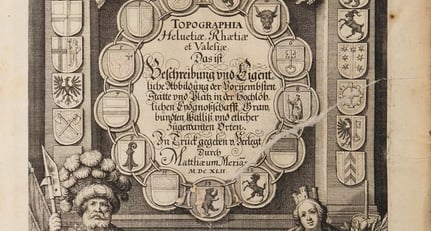 TOPOGRAPHIA
Helvetiæ, Rhætiæ
et Valesiæ
Das ist
Beschreibung vnd Eigent
liche Abbildung der Vornembsten
Stätte vnd Plätz in der Hochlöb
lichen Eydgnoßschafft, Graw
bündten Walliß, vnd etlicher
Zugewanten Orten.
In Truck gegeben v. Verlegt
Durch
Matthæum Meriā.
M.DC.XLII.